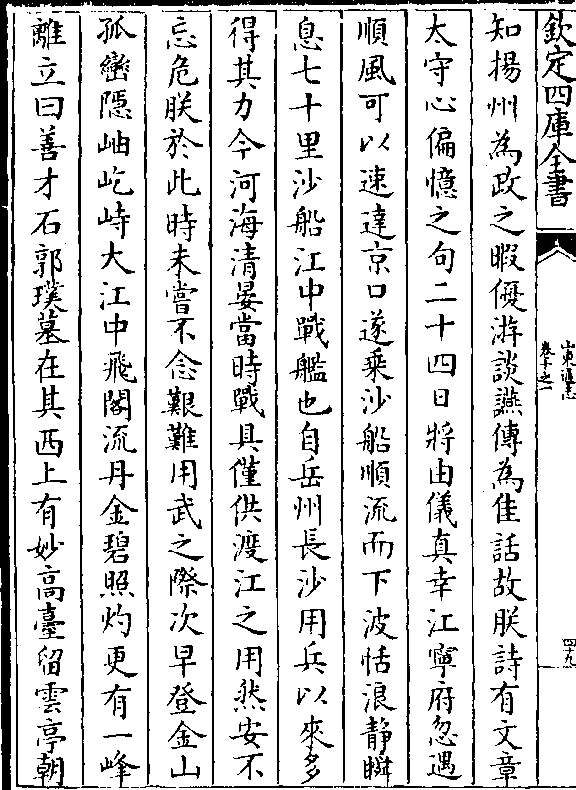 欽定四庫全書
山東通志
卷十之一
四九
知揚州為政之暇優游談讌傳為佳話故朕詩有文章
太守心偏憶之句二十四日將由儀真幸江寧府忽遇
順風可以速達京口遂乗沙船順流而下波恬浪静瞬
息七十里沙船江中戰艦也自岳州長沙用兵以來多
得其力今河海清晏當時戰具僅供渡江之用然安不
忘危朕於此時未嘗不念艱難用武之際次早登金山
孤巒隠岫屹峙大江中飛閣流丹金碧照灼更有一峰
離立曰善才石郭璞墓在其西上有妙高臺留雲亭朝